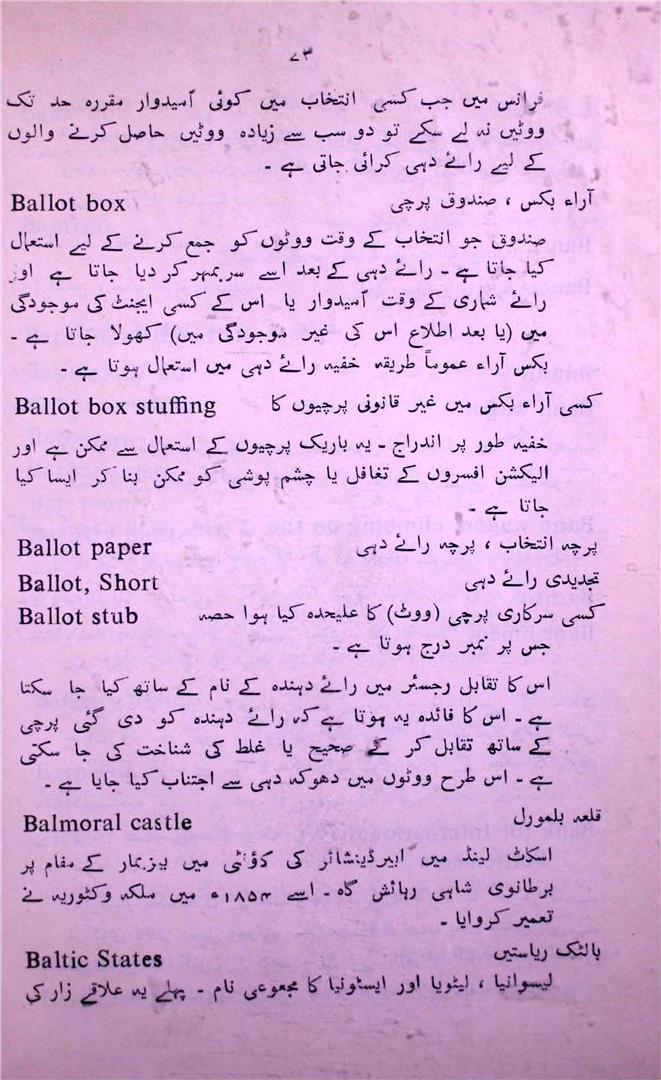 ۷۳
فرانس میں جب کسی انتخاب میں کوئی اُمیدوار مقررہ حد تک
ووٹیں نہ لے سکے تو دو سب سے زیادہ ووٹیں حاصل کرنے والوں
کے لیے رائے دہی کرائی جاتی ہے ۔
Ballot box آراء بکس ، صندوق پرچی
صندوق جو انتخاب کے وقت ووٹوں کو جمع کرنے کے لیے استعمال
کیا جاتا ہے ۔ رائے دہی کے بعد اسے سربمہر کر دیا جاتا ہے اور
رائے شماری کے وقت اُمیدوار یا اس کے کسی ایجنٹ کی موجودگی
میں (یا بعد اطلاع اس کی غیر موجودگی میں) کھولا جاتا ہے ۔
بکس آراء عموماً طریقہ خفیہ رائے دہی میں استعمال ہوتا ہے ۔
Ballot box stuffing کسی آراء بکس میں غیر قانونی پرچیوں کا
خفیہ طور پر اندراج ۔ یہ باریک پرچیوں کے استعمال سے ممکن ہے اور
الیکشن افسروں کے تغافل یا چشم پوشی کو ممکن بنا کر ایسا کیا
جاتا ہے ۔
Ballot paper پرچہ انتخاب ، پرچہ رائے دہی
Ballot, Short تحدیدی رائے دہی
Ballot stub کسی سرکاری پرچی (ووٹ) کا علیحدہ کیا ہوا حصہ
جس پر نمبر درج ہوتا ہے ۔
اس کا تقابل رجسٹر میں رائے دہندہ کے نام کے ساتھ کیا جا سکتا
ہے ۔ اس کا فائدہ یہ ہوتا ہے کہ رائے دہندہ کو دی گئی پرچی
کے ساتھ تقابل کر کے صحیح یا غلط کی شناخت کی جا سکتی
ہے ۔ اس طرح ووٹوں میں دھوکہ دہی سے اجتناب کیا جایا ہے ۔
Balmoral castle قلعہ بلمورل
اسکاٹ لینڈ میں ایبرڈینشائر کی کاؤنٹی میں بریمار کے مقام پر
برطانوی شاہی رہائش گاہ ۔ اسے ۱۸۵۴ء میں ملکہ وکٹوریہ نے
تعمیر کروایا ۔
Baltic States بالٹک ریاستیں
لیسوانیا ، لیٹویا اور ایسٹونیا کا مجموعی نام ۔ پہلے یہ علاقے زار کی